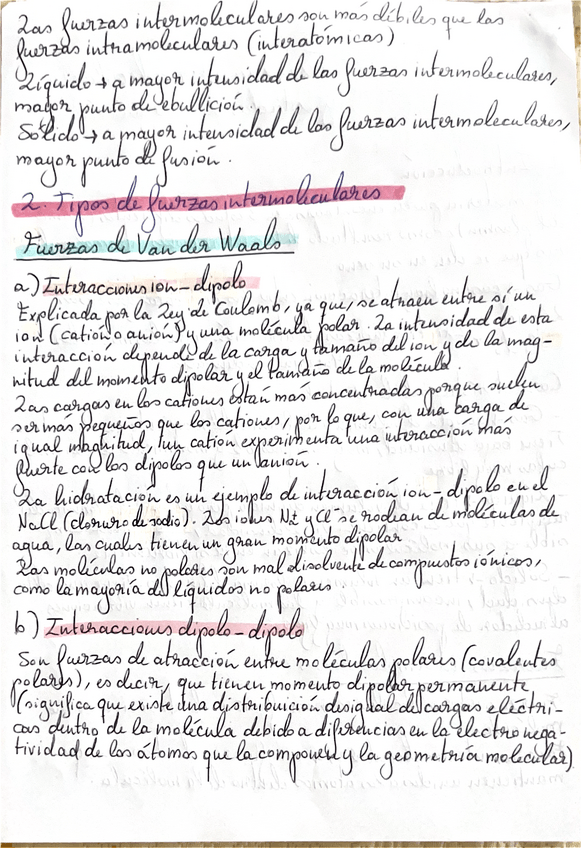 Las fuerzas intermoleculares son más débiles que las
fuerzas intramoleculares (interatómicas)
Líquido → a mayor intensidad de las fuerzas intermoleculares,
mayor punto de ebullición.
Sólido → a mayor intensidad de las fuerzas intermoleculares,
mayor punto de fusión.
2. Tipos de fuerzas intermoleculares
Fuerzas de Van der Waals
a) Interacciones ion-dipolo
Explicada por la Ley de Coulomb, ya que, se atraen entre sí un
ion (catión o anión) y una molécula polar. La intensidad de esta
interacción depende de la carga y tamaño del ion y de la mag-
nitud del momento dipolar y el tamaño de la molécula.
Las cargas en los cationes están más concentradas porque suelen
ser más pequeños que los cationes, por lo que, con una carga de
igual magnitud, un catión experimenta una interacción más
fuerte con los dipolos que un anión.
La hidratación es un ejemplo de interacción ion-dipolo en el
NaCl (cloruro de sodio). Los iones Na⁺ y Cl⁻ se rodean de moléculas de
agua, las cuales tienen un gran momento dipolar
Las moléculas no polares son mal disolvente de compuestos iónicos,
como la mayoría de líquidos no polares.
b) Interacciones dipolo-dipolo
Son fuerzas de atracción entre moléculas polares (covalentes
polares), es decir, que tienen momento dipolar permanente
(significa que existe una distribución desigual de cargas eléctri-
cas dentro de la molécula debido a diferencias en la electronega-
tividad de los átomos que la componen y la geometría molecular)